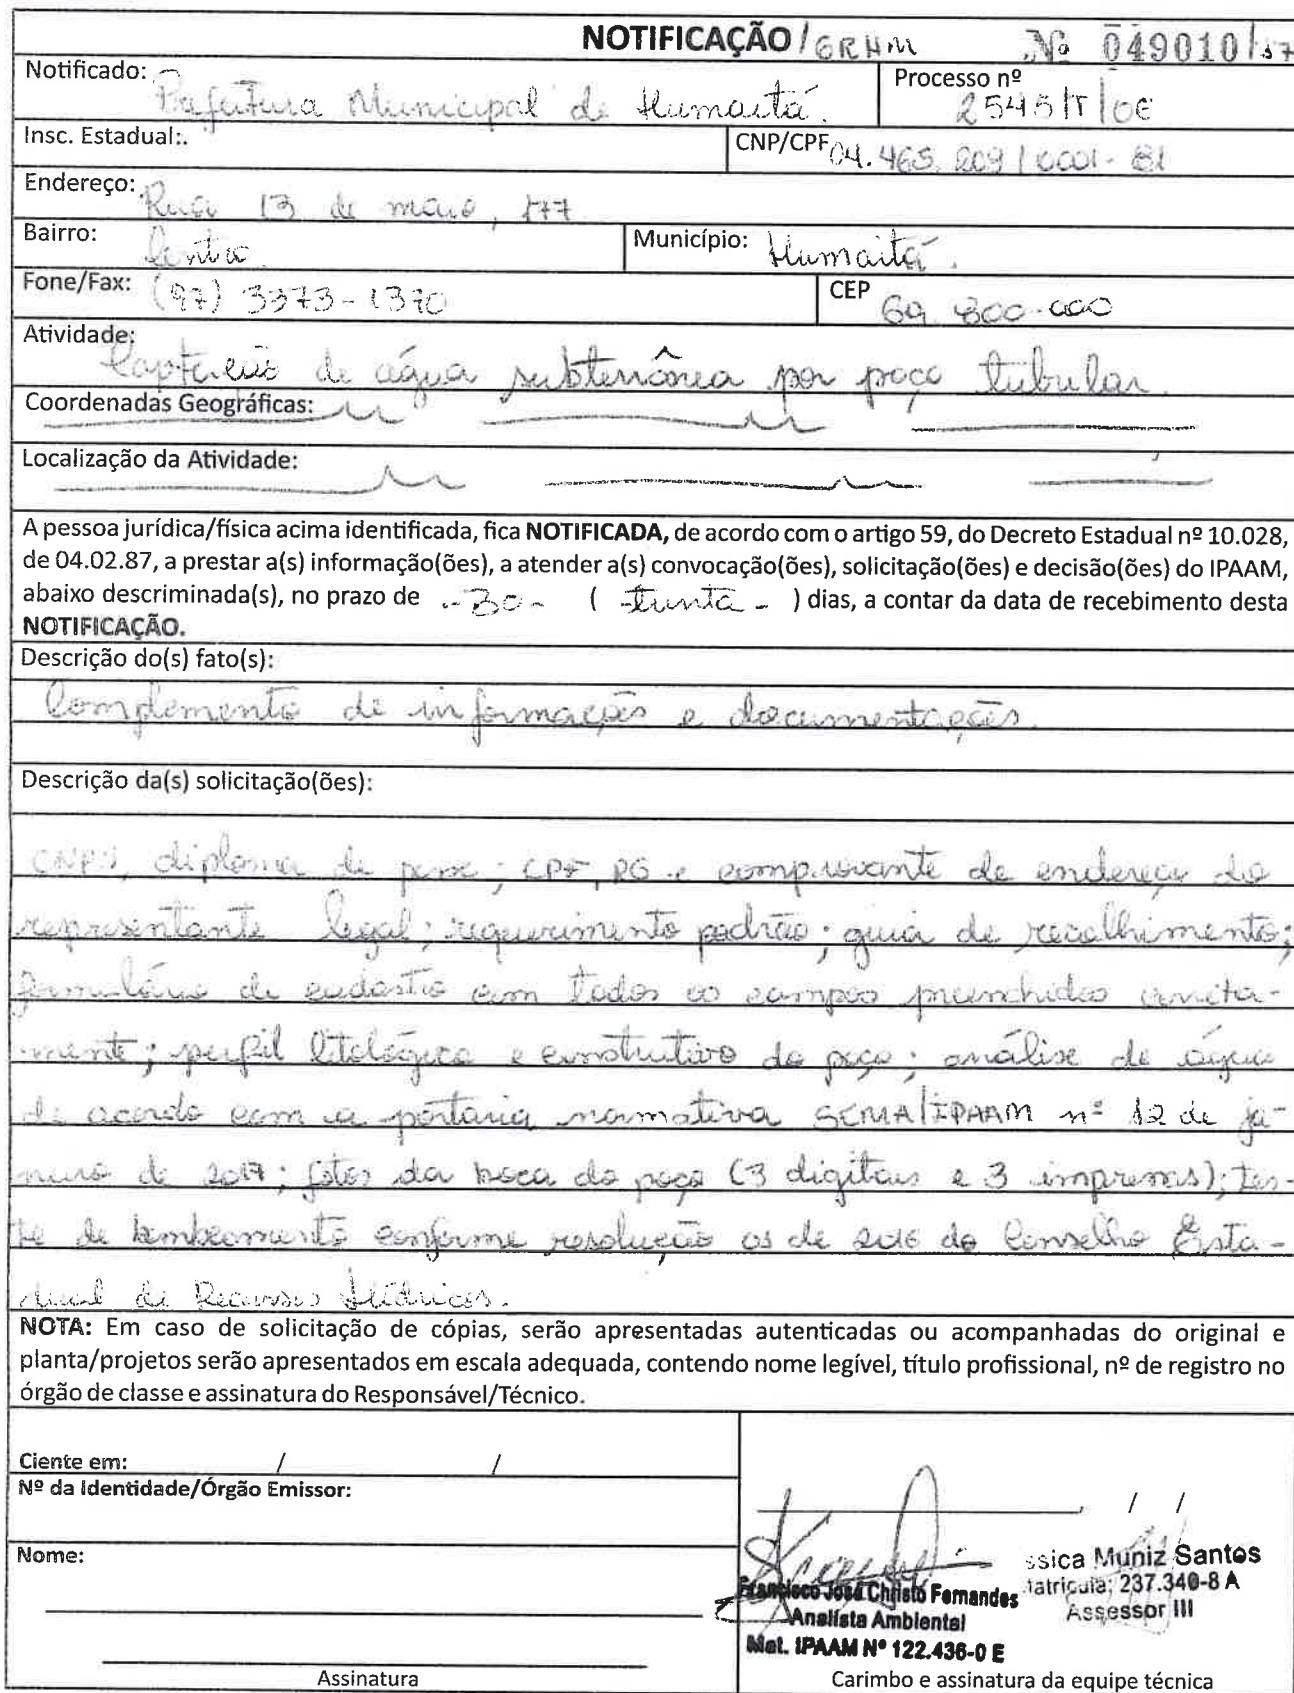 NOTIFICAÇÃO / GRHM Nº 049010/17
Notificado: Prefeitura Municipal de Humaitá.
Processo nº 2545/T/06
Insc. Estadual:.
CNP/CPF 04.465.209/0001-81
Endereço: Rua 13 de maio, 177
Bairro: Centro
Município: Humaitá.
Fone/Fax: (97) 3373-1370
CEP 69.800-000
Atividade: Captação de água subterrânea por poço tubular.
Coordenadas Geográficas:
Localização da Atividade:
A pessoa jurídica/física acima identificada, fica NOTIFICADA, de acordo com o artigo 59, do Decreto Estadual nº 10.028,
de 04.02.87, a prestar a(s) informação(ões), a atender a(s) convocação(ões), solicitação(ões) e decisão(ões) do IPAAM,
abaixo descriminada(s), no prazo de -30- ( -trinta- ) dias, a contar da data de recebimento desta
NOTIFICAÇÃO.
Descrição do(s) fato(s):
Complemento de informações e documentações.
Descrição da(s) solicitação(ões):
CNPJ, diploma de posse; CPF, RG e comprovante de endereço do
representante legal; requerimento padrão; guia de recolhimento;
formulário de cadastro com todos os campos preenchidos correta-
mente; perfil litológico e construtivo do poço; análise de água
de acordo com a portaria normativa SEMA/IPAAM nº 12 de ja-
neiro de 2017; fotos da boca do poço (3 digitais e 3 impressas); tes-
te de bombeamento conforme resolução 01 de 2016 do Conselho Esta-
dual de Recursos Hídricos.
NOTA: Em caso de solicitação de cópias, serão apresentadas autenticadas ou acompanhadas do original e
planta/projetos serão apresentados em escala adequada, contendo nome legível, título profissional, nº de registro no
órgão de classe e assinatura do Responsável/Técnico.
Ciente em: / /
Nº da Identidade/Órgão Emissor:
Nome:
Assinatura
, / /
ssica Muniz Santos
latricula: 237.340-8 A
Assessor III
Francisco José Christo Fernandes
Analista Ambiental
Mat. IPAAM Nº 122.436-0 E
Carimbo e assinatura da equipe técnica